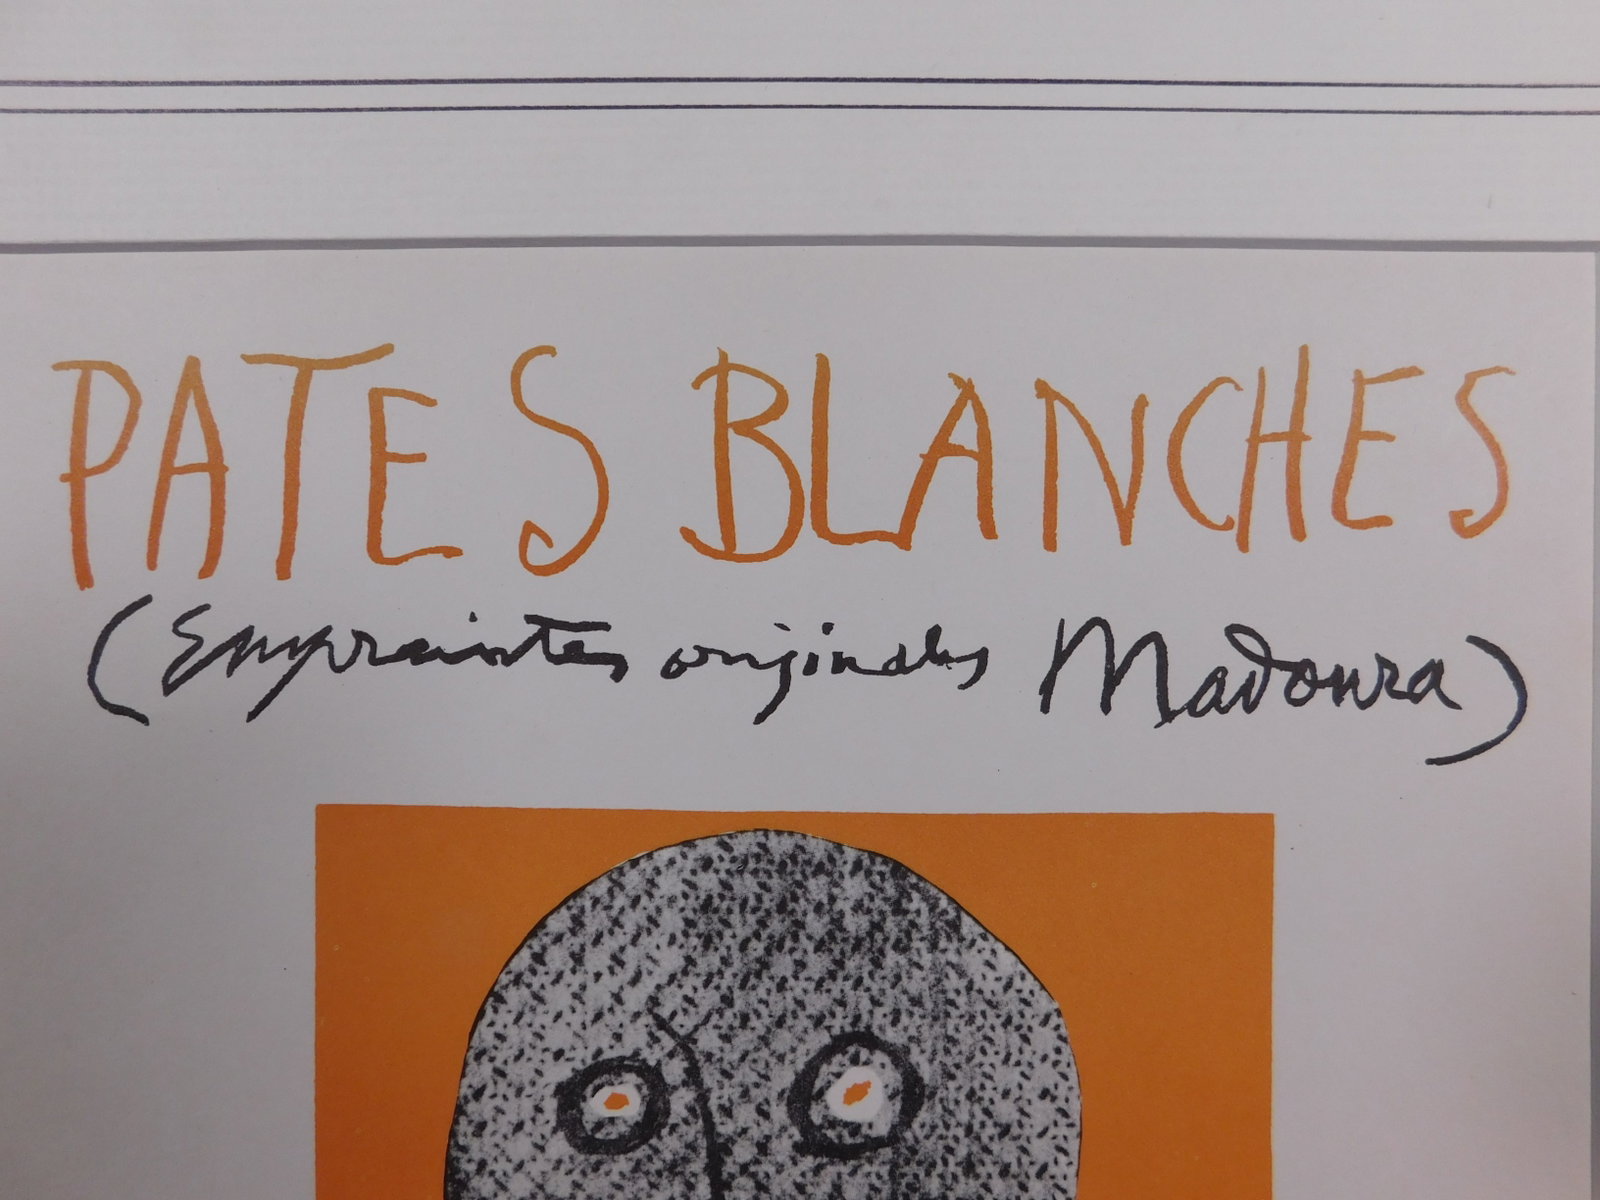 PATES BLANCHES
(Empreintes originales Madoura)